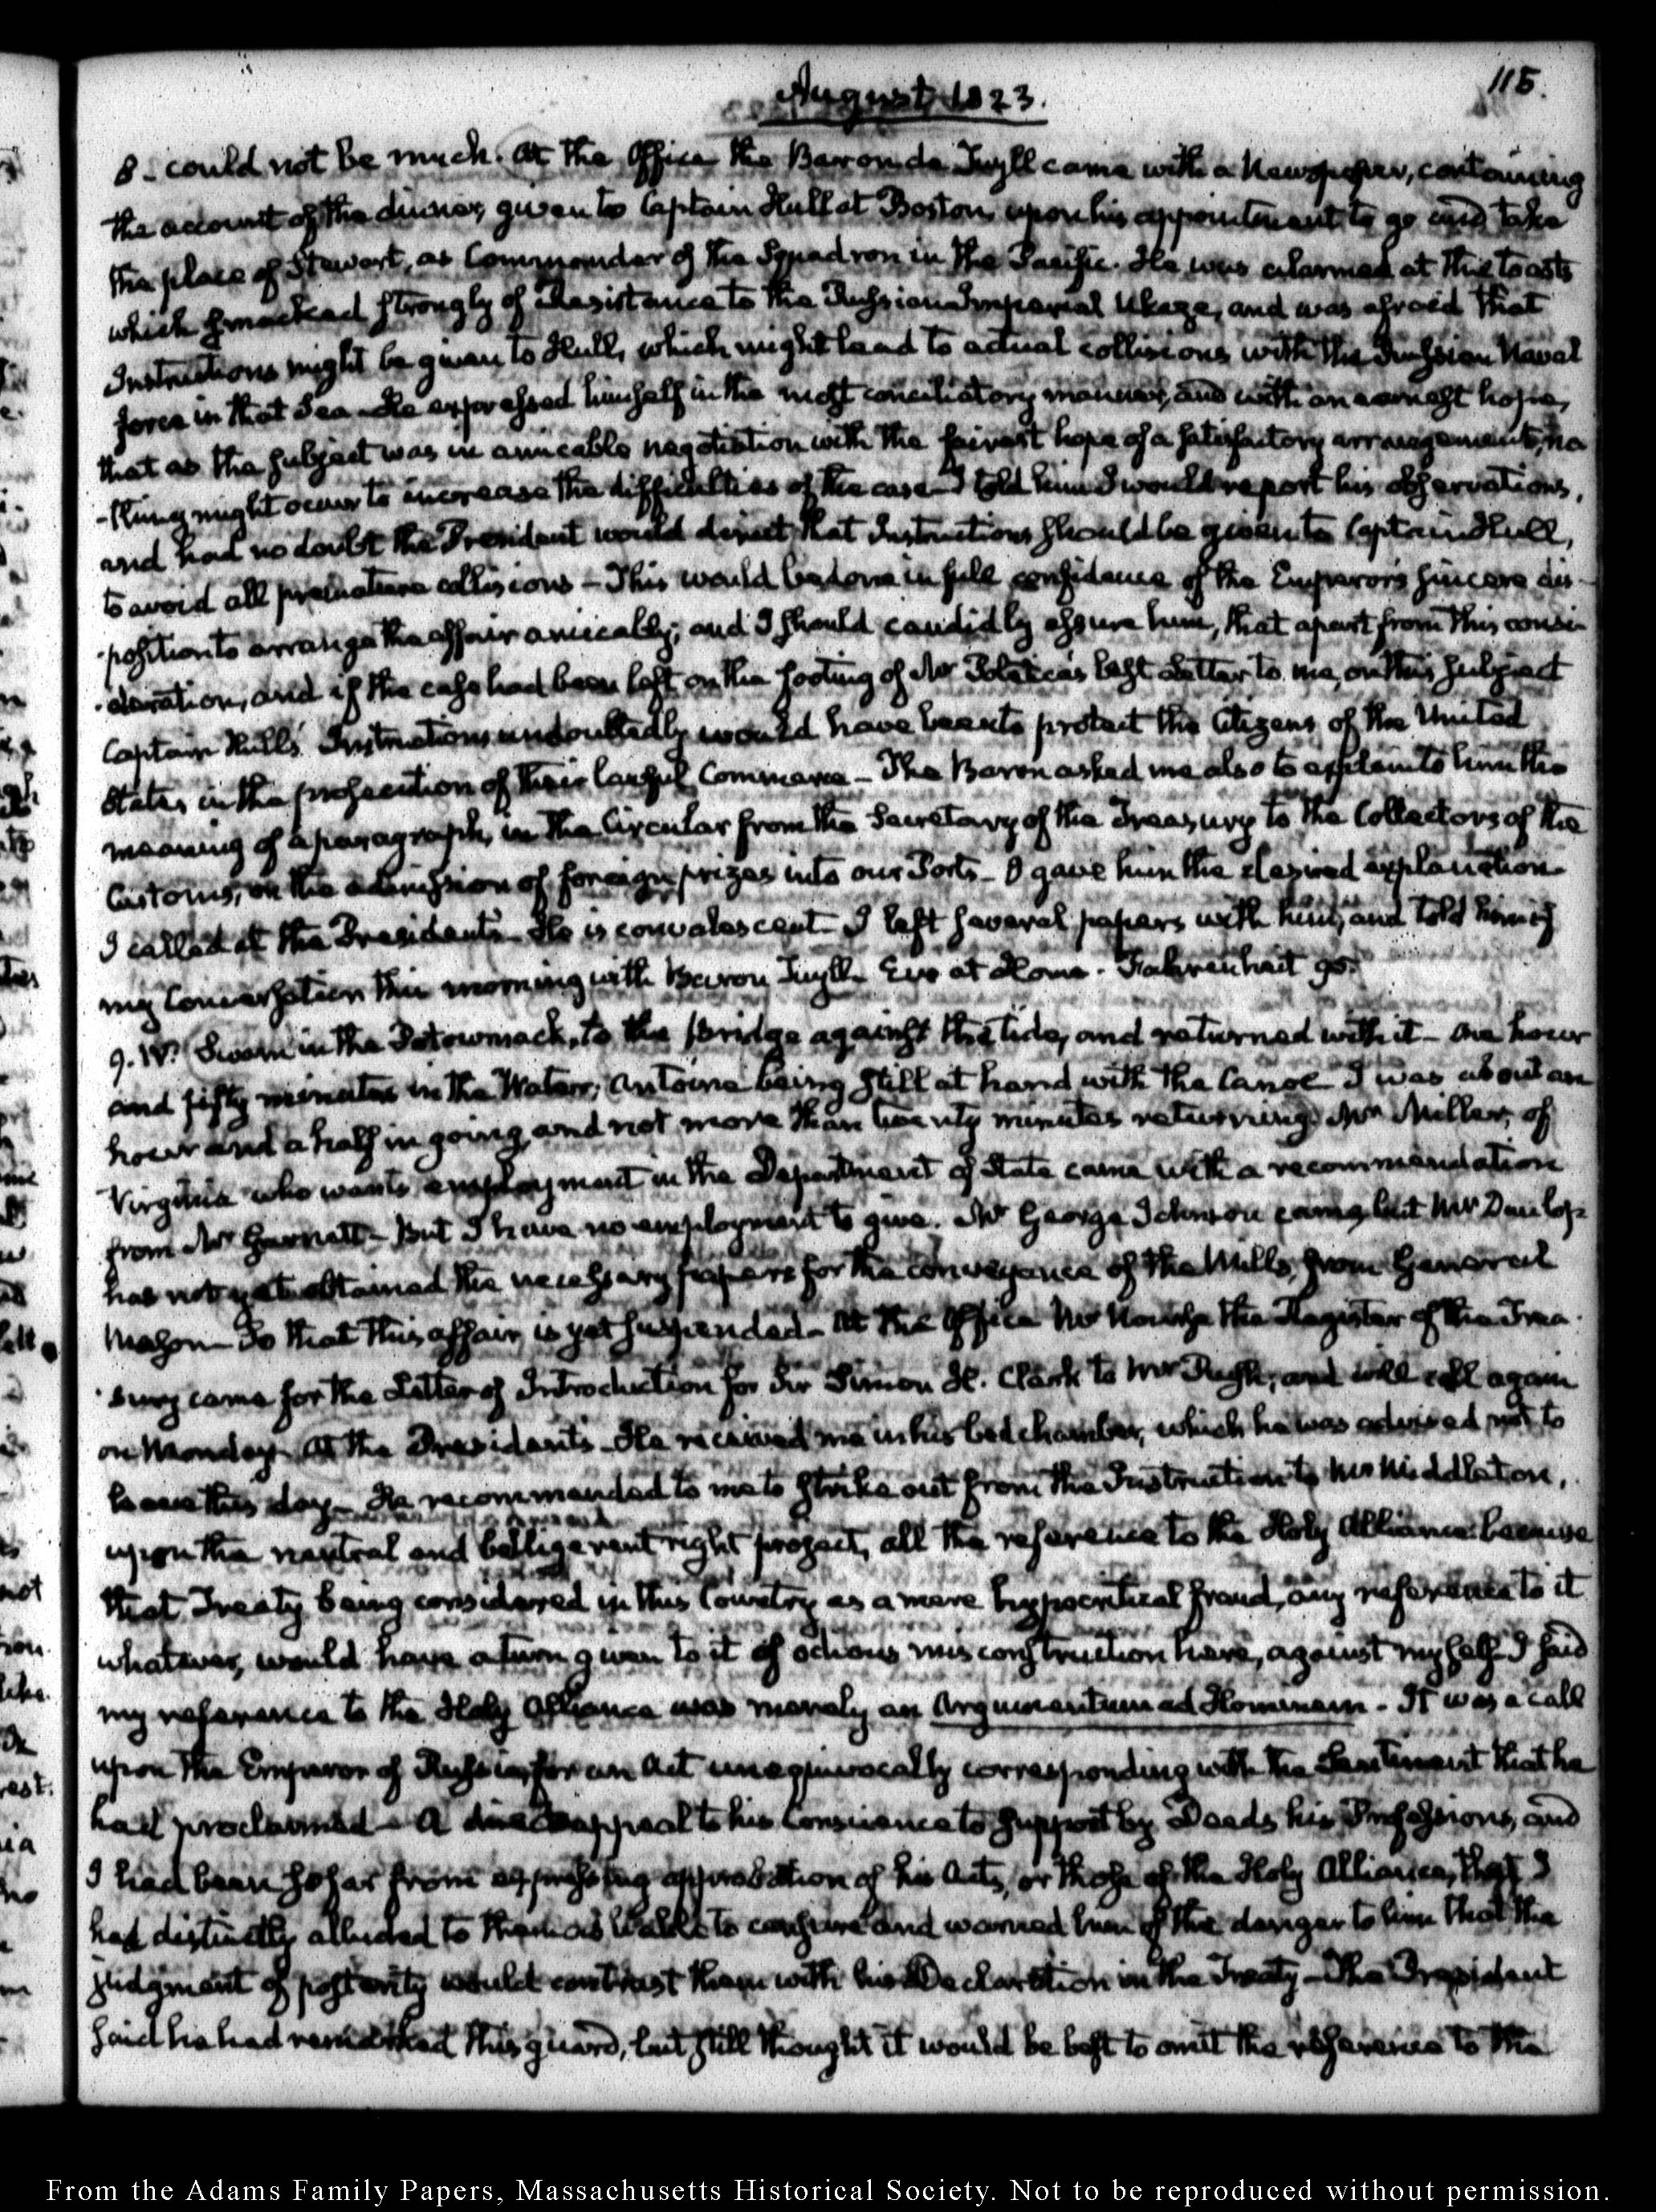 August 1823.
115.
8 - could not be much. At the Office the Baron de Tuyll came with a Newspaper, containing
the account of the dinner, given to Captain Hull at Boston, upon his appointment to go and take
the place of Stewart, as Commander of the Squadron in the Pacific. He was alarmed at the toasts
which smacked strongly of Resistance to the Russian Imperial Ukaze, and was afraid that
Instructions might be given to Hull, which might lead to actual collisions with the Russian Naval
force in that Sea - He expressed himself in the most conciliatory manner, and with an earnest hope,
that as the subject was in amicable negotiation with the fairest hope of a satisfactory arrangement, no
-thing might occur to increase the difficulties of the case - I told him I would report his observations,
and had no doubt the President would direct that Instructions should be given to Captain Hull,
to avoid all premature collisions - This would be done in full confidence of the Emperor's sincere dis-
-position to arrange the affair amicably; and I should candidly assure him, that apart from this consi-
-deration, and if the case had been left on the footing of Mr Poletica's last Letter to me, on this subject
Captain Hull's Instructions undoubtedly would have been to protect the Citizens of the United
States in the prosecution of their lawful Commerce - The Baron asked me also to explain to him the
meaning of a paragraph, in the Circular from the Secretary of the Treasury to the Collectors of the
Customs, on the admission of foreign prizes into our Ports - I gave him the desired explanation -
I called at the President's - He is convalescent - I left several papers with him, and told him of
my Conversation this morning with Baron Tuyll - Eve at Home. Fahrenheit 90.
9. IV. Swam in the Potowmack, to the bridge against the tide, and returned with it - one hour
and fifty minutes in the Water; Antoine being still at hand with the Canoe - I was about an
hour and a half in going, and not more than twenty minutes returning. Mr Miller, of
Virginia who wants employment in the Department of State came with a recommendation
from Mr Garnett - But I have no employment to give. Mr George Johnson came, but Mr Dunlop
has not yet obtained the necessary papers for the conveyance of the Mills, from General
Mason - So that this affair is yet suspended - At the Office Mr Nourse the Register of the Trea-
-sury came for the Letter of Introduction for Sir Simon H. Clark to Mr Rush; and will call again
on Monday - At the President's - He received me in his bed chamber, which he was advised not to
leave this day - He recommended to me to strike out from the Instruction to Mr Middleton,
upon the neutral and belligerent right project, all the reference to the Holy Alliance because
that Treaty being considered in this Country as a mere hypocritical fraud, any reference to it
whatever, would have a turn given to it of odious misconstruction here, against myself - I said
my reference to the Holy Alliance was merely an Argumentum ad Hominem - It was a call
upon the Emperor of Russia, for an Act unequivocally corresponding with the Sentiment that he
had proclaimed - A direct appeal to his Conscience to support by Deeds his Professions, and
I had been so far from expressing approbation of his Acts, or those of the Holy Alliance, that I
had distinctly alluded to them as liable to censure and warned him of the danger to him that the
judgment of posterity would contrast them with his Declaration in the Treaty - The President
said he had remarked this guard, but still thought it would be best to omit the reference to the
From the Adams Family Papers, Massachusetts Historical Society. Not to be reproduced without permission.